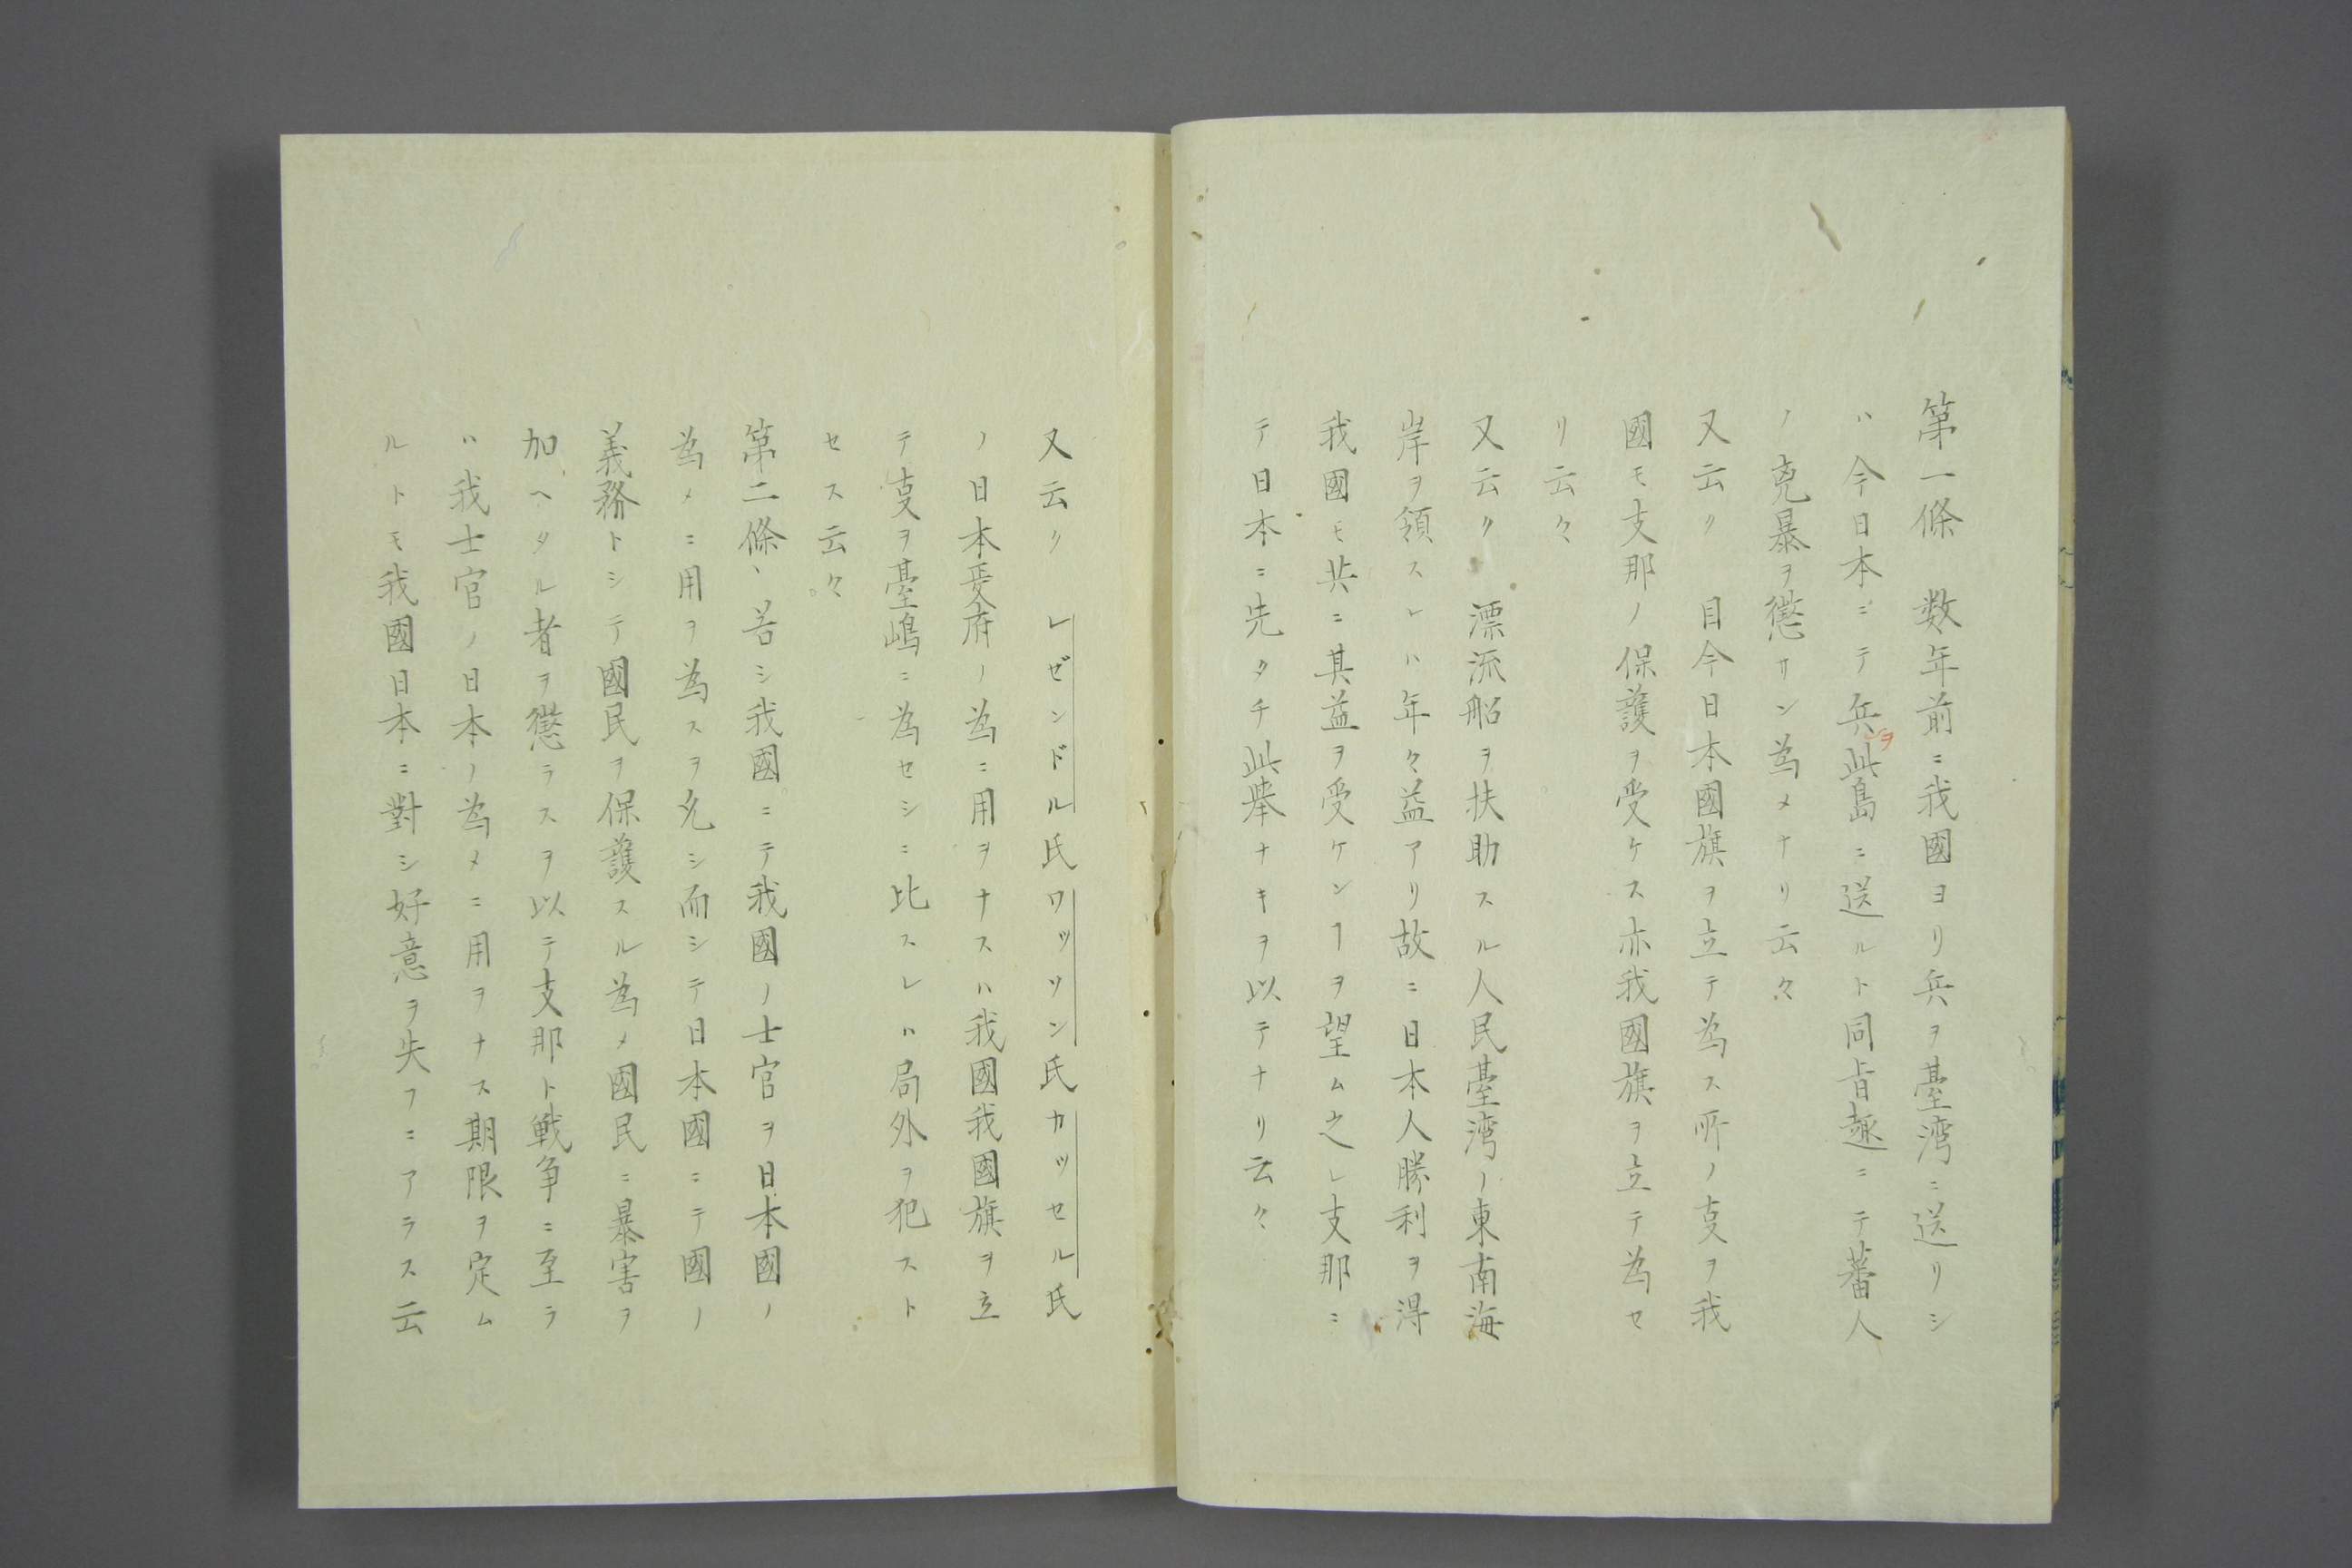 第一條　数年前ニ我國ヨリ兵ヲ臺湾ニ送リシ
ハ今日本ニテ兵ヲ此島ニ送ルト同旨趣ニテ蕃人
ノ兇暴ヲ懲サン為メナリ云々
又云ク　目今日本國旗ヲ立テ為ス所ノ叓ヲ我
國モ支那ノ保護ヲ受ケス亦我國旗ヲ立テ為セ
リ云々
又云ク　漂流船ヲ扶助スル人民臺湾ノ東南海
岸ヲ領スレハ年々益アリ故ニ日本人勝利ヲ得
我國モ共ニ其益ヲ受ケンヿヲ望ム之レ支那ニ
テ日本ニ先タチ此挙ナキヲ以テナリ云々
又云ク　レゼンドル氏ワッソン氏カッセル氏
ノ日本政府ノ為ニ用ヲナスハ我國我國旗ヲ立
テ叓ヲ臺嶋ニ為セシニ比スレハ局外ヲ犯スト
セス云々
第二條、若シ我國ニテ我國ノ士官ヲ日本國ノ
為メニ用ヲ為スヲ允シ而シテ日本國ニテ國ノ
義務トシテ國民ヲ保護スル為メ國民ニ暴害ヲ
加ヘタル者ヲ懲ラスヲ以テ支那ト戦争ニ至ラ
ハ我士官ノ日本ノ為メニ用ヲナス期限ヲ定ム
ルトモ我國日本ニ對シ好意ヲ失フニアラス云